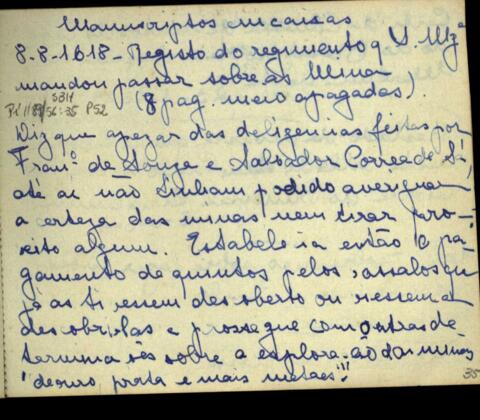 Manuscriptos em caixas
8-8-1618 - Registo do regimento q S. Mg.e
mandou passar sobre as Mina
(8 pag. meio apagadas).
Diz que apezar das deligencias feitas por
Fran.o de Souza e Salvador Correa de Sá,
até aí não tinham podido averiguar
a certeza das minas nem tirar pro-
veito algum. Estabelecia então o pa-
gamento de quintos pelos vassalos que
já as tivessem descoberto ou viessem a
descobril-as e prossegue com outras de
terminações sobre a exploração das minas
"de ouro prata e mais metaes"
5314
P52
35